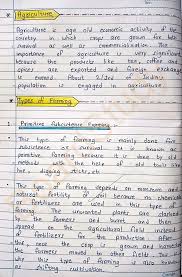 Agriculture
Agriculture is age old economic activity of the
country in which crops are grown for both
survival as well as commercialisation. The
importance of agriculture is very significant
because the products like tea, coffee and
spices are exported and foreign exchange
is earned. About 2/3rd of India's
population is engaged in agriculture.
Types of Farming
1. Primitive Subsistence Farming
This type of farming is mainly done for
subsistence or survival. It is known as
primitive farming because it is done by old
methods with the help of old tools like
hoe, digging sticks, etc
This type of farming depends on monsoon and
natural fertility of soil because no chemicals
or fertilizers are used in this type of
farming. The unwanted plants are
by the farmers and burnt and
spread on the agricultural field instead
of fertilizers for the productive
this once the crop is grown and
the farmers moved to other fields. This is
why this type of farming is also known as
as shifting cultivation.